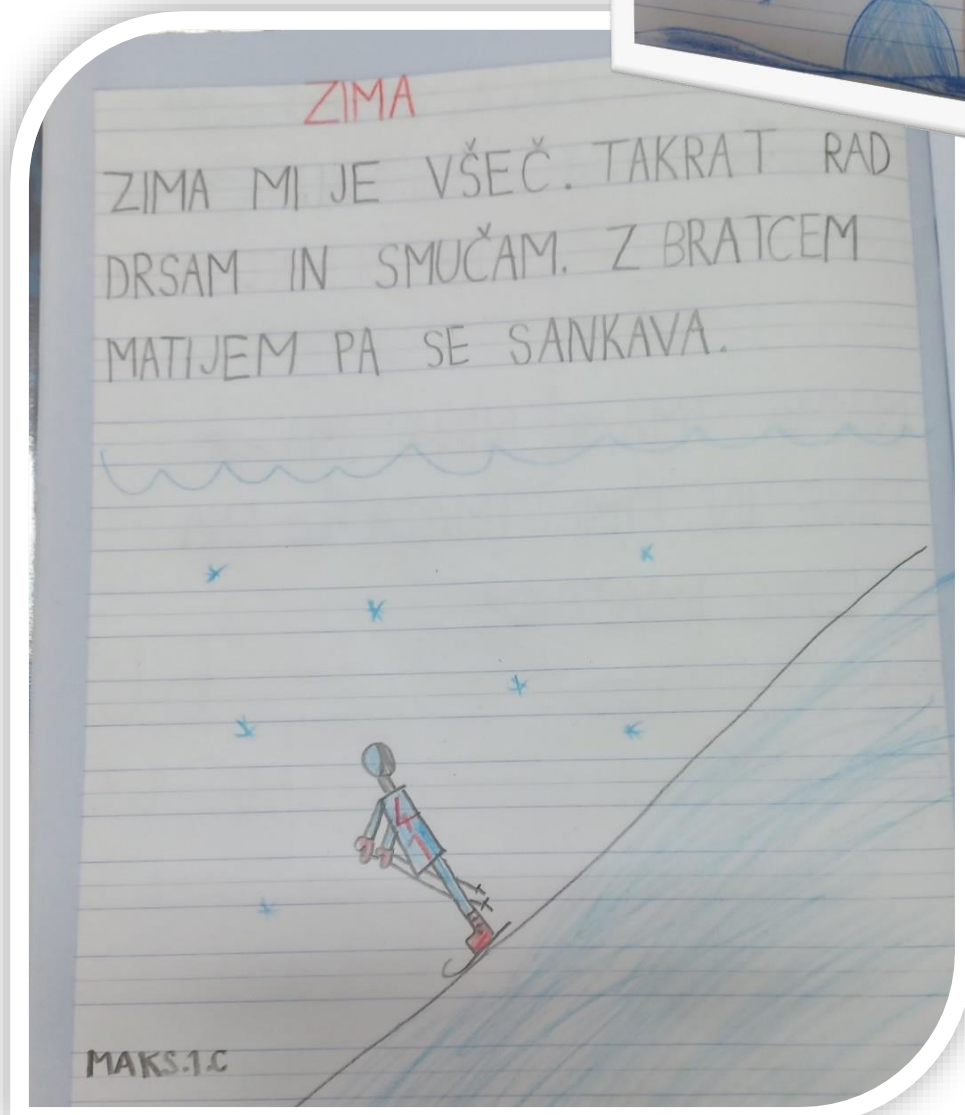 ZIMA
ZIMA MI JE VŠEČ. TAKRAT RAD
DRSAM IN SMUČAM. Z BRATCEM
MATIJEM PA SE SANKAVA.
MAKS.1.C